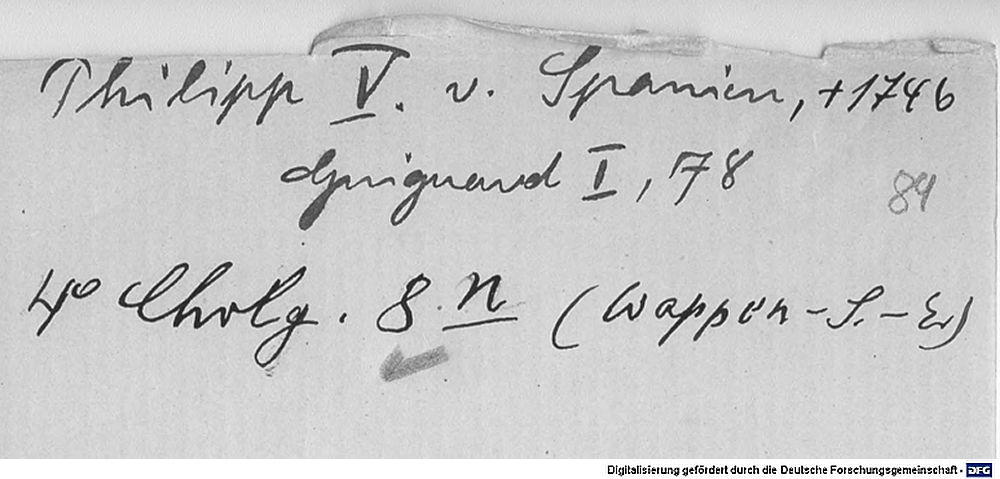 Philipp V. v. Spanien, +1746
Guiguard I, 78
84
4° Cholg. 8 n (Wappen-S.-Ex)
Digitalisierung gefördert durch die Deutsche Forschungsgemeinschaft - DFG